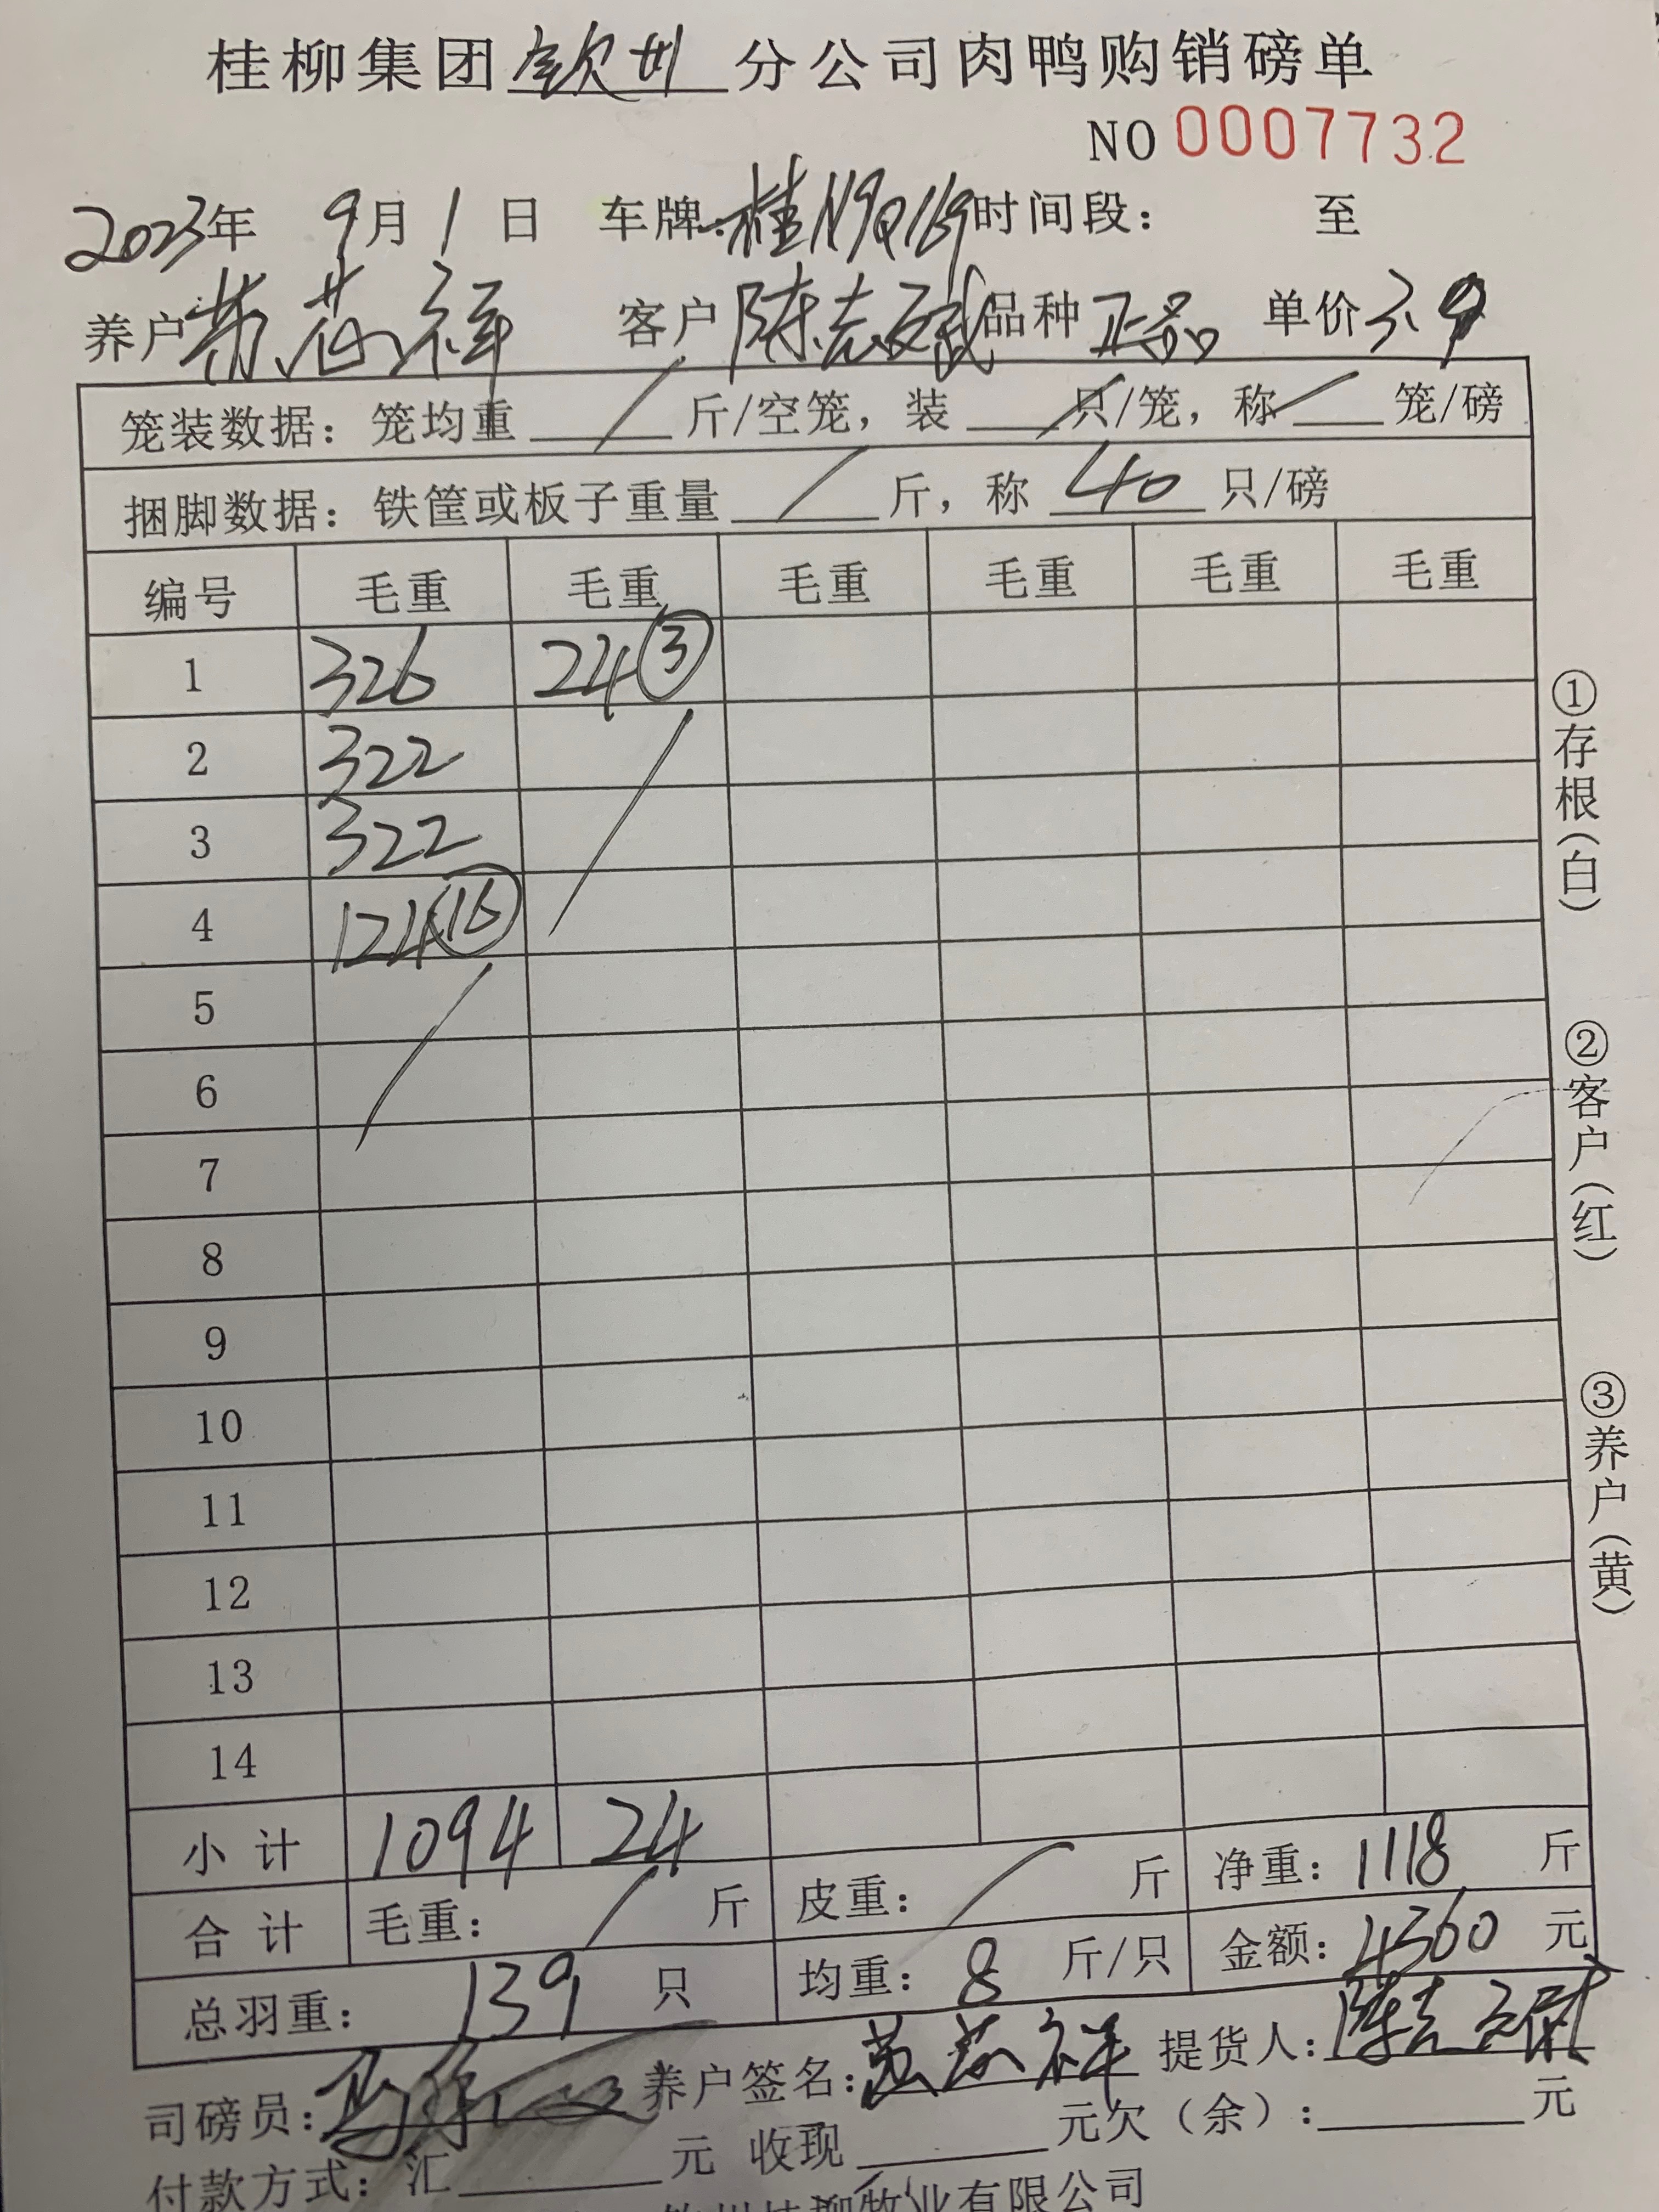 桂柳集团钦州分公司肉鸭购销磅单
NO 0007732
2023年 9月1日 车牌:桂N9Q169时间段: 至
养户 客户 陈志 品种 正品 单价 3.9
笼装数据:笼均重 / 斤/空笼,装 / 只/笼,称 / 笼/磅
捆脚数据:铁筐或板子重量 / 斤,称 40 只/磅
编号 毛重 毛重 毛重 毛重 毛重 毛重
1 326 24③
2 322
3 322
4 124⑯
5
6
7
8
9
10
11
12
13
14
小计 1094 24
合计 毛重: / 斤 皮重: / 斤 净重:1118 斤
总羽重: 139 只 均重: 8 斤/只 金额:4360 元
司磅员: 养户签名: 提货人:陈志
付款方式:汇 元 收现 元欠(余): 元
钦州桂柳牧业有限公司
①存根(白)
②客户(红)
③养户(黄)